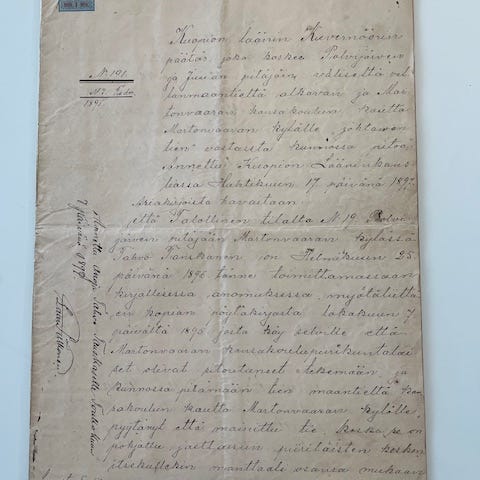 No 191
1896
Kuopion läänin Kuvernöörin
päätös joka koskee Polvijärven
ja Juu'an pitäjäin väliseltä val-
tanmaantieltä alkavan ja Mar-
tonvaaran kansakoulun kautta
Martonvaaran kylälle johtavan
tien vastaista kunnossa pitoa.
Annettu Kuopion Lääninkans-
liassa Huhtikuun 17 päivänä 1897.
Asiakirjoista havaitaan
että Talollinen tilalta N 19 Polvi-
järven pitäjään Martonvaaran kylässä
Tahvo Tanskanen on Helmikuun 25
päivänä 1896 tänne toimittamassaan
kirjallisessa anomuksessa, myötäliittä-
en kopian pöytäkirjasta lokakuun 7
päivältä 1895 josta käy selville että
Martonvaaran kansakoulupiirikuntalai
set olivat sitoutuneet tekemään ja
kunnossa pitämään tien maantieltä kan
sakoulun kautta Martonvaaran kylälle,
pyytänyt että mainittu tie, koska se on
pohjattu jaettaisiin piiriläisten kesken
itsekullekin manttaali osansa mukaan